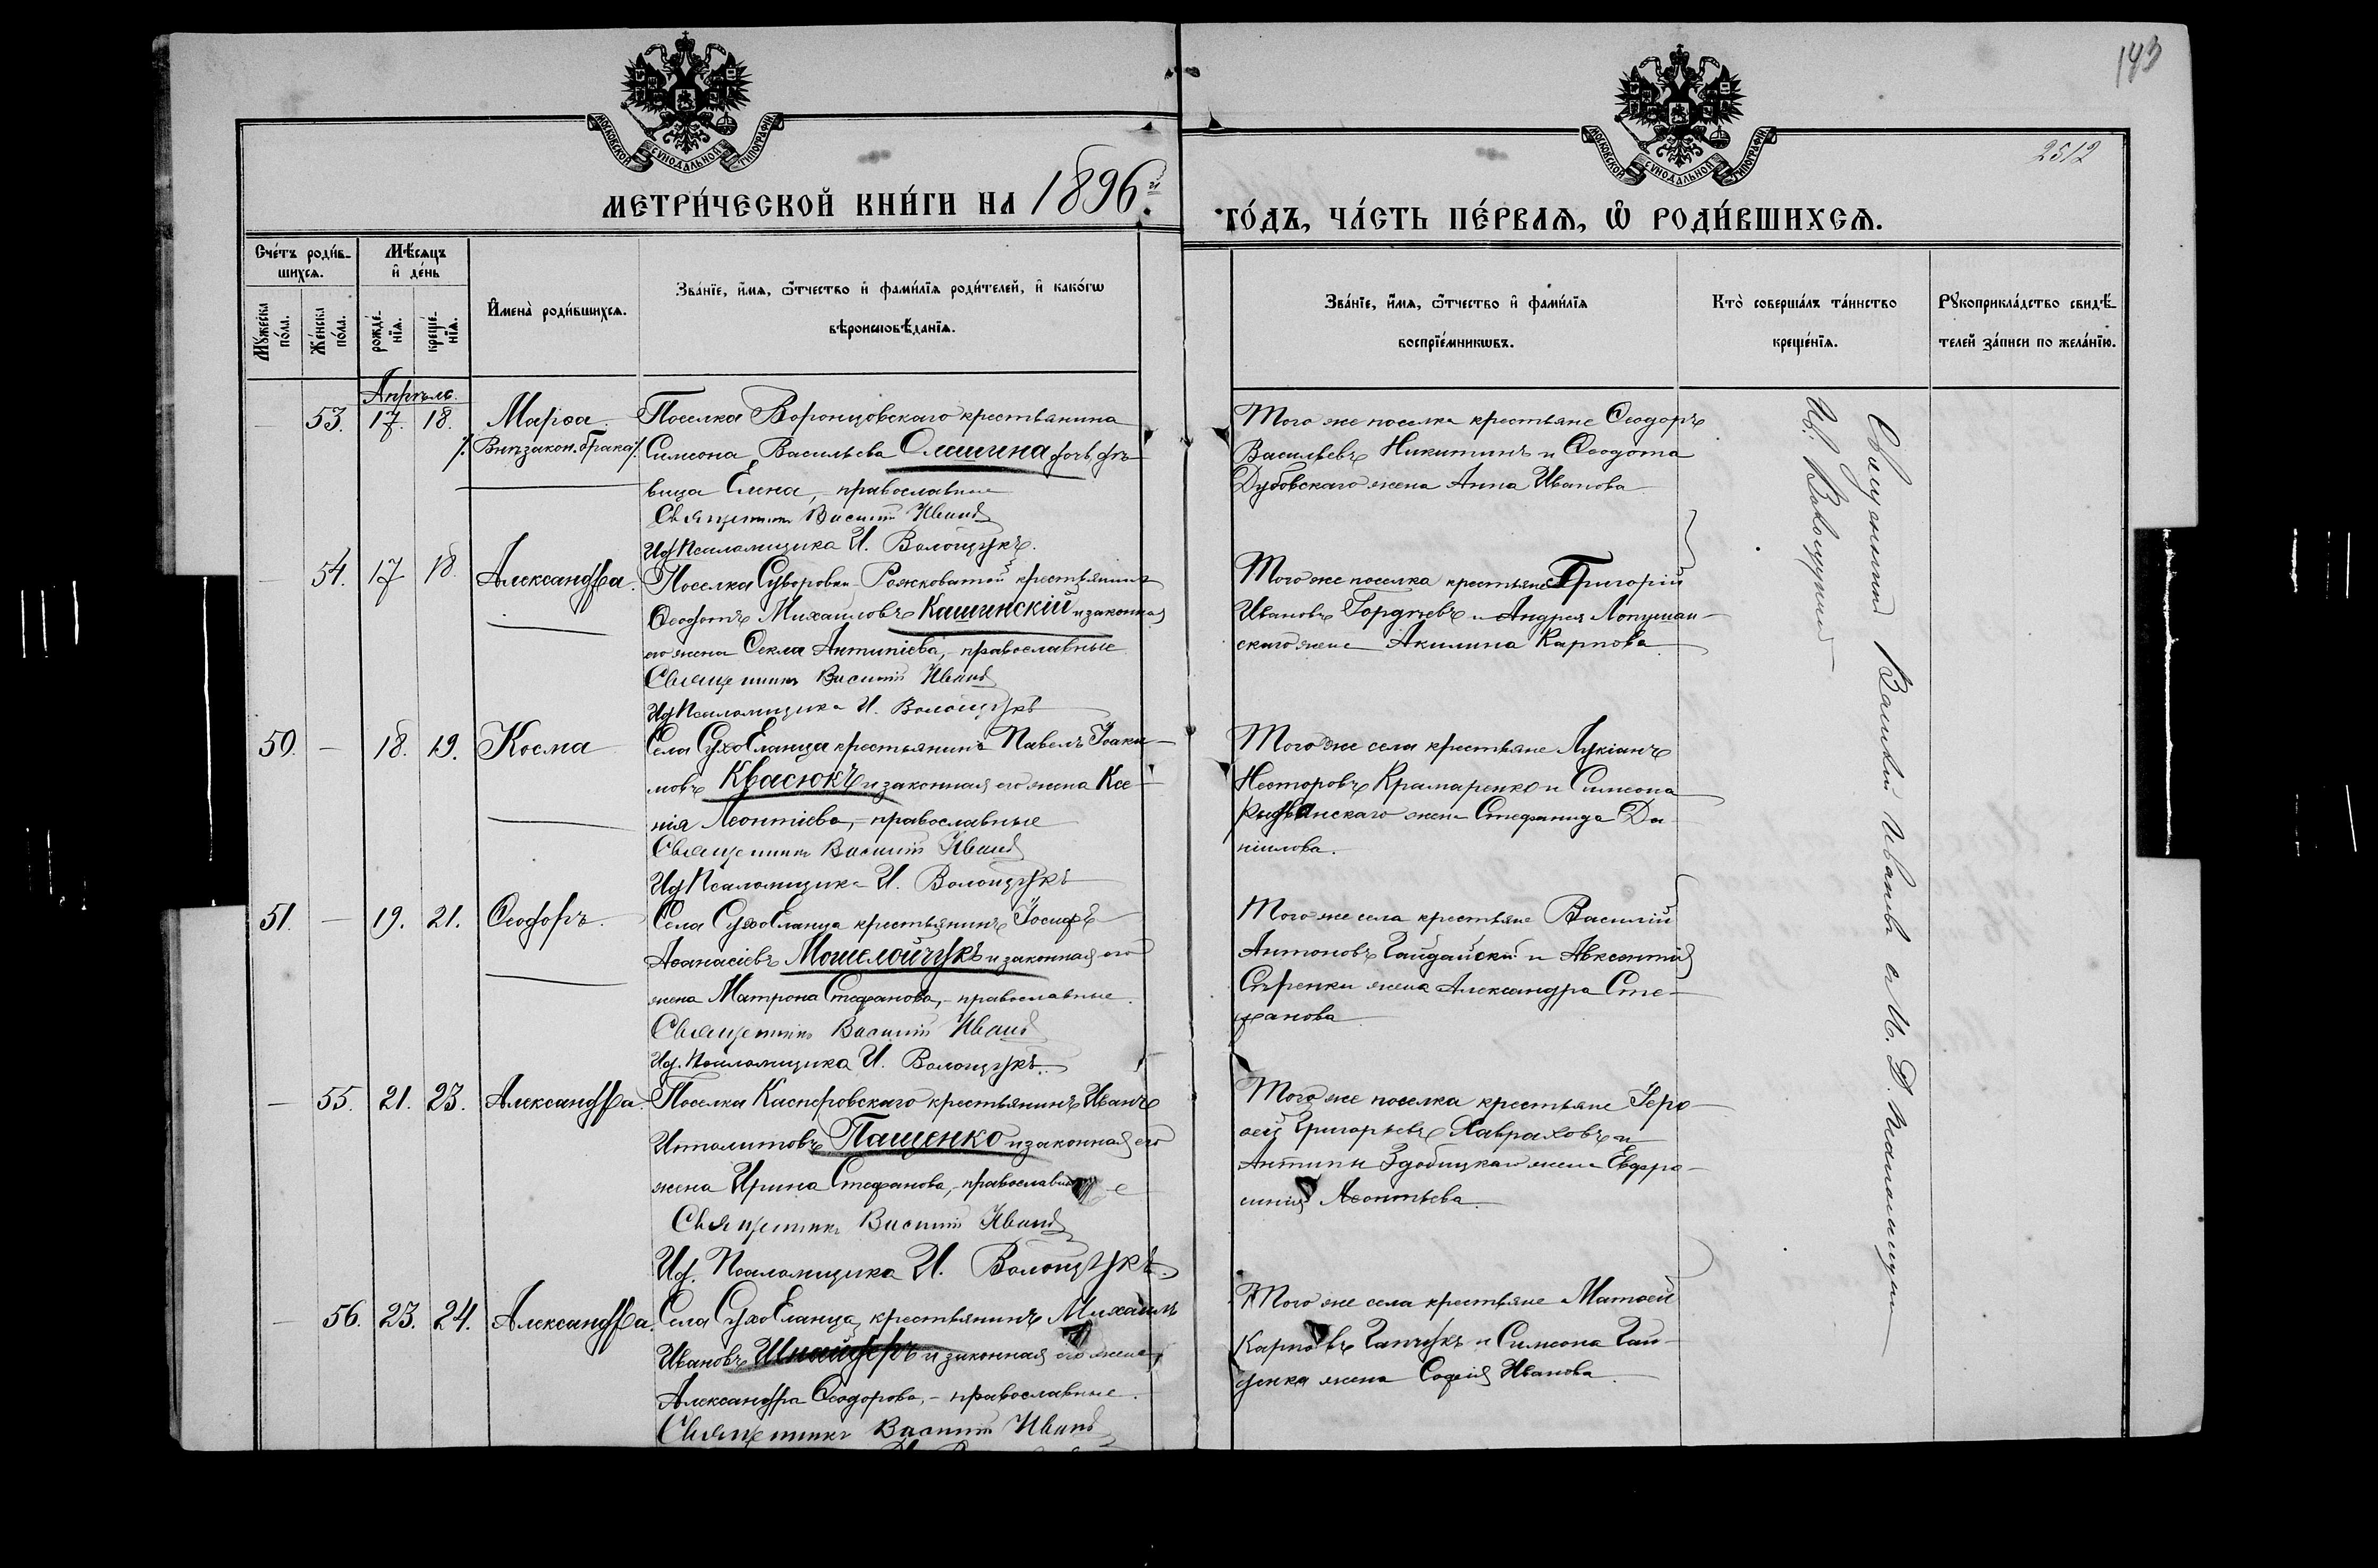 143
2512
МОСКОВСКОЙ СѴНОДАЛЬНОЙ ТИПОГРАФІИ
МОСКОВСКОЙ СѴНОДАЛЬНОЙ ТИПОГРАФІИ
МЕТРИ́ЧЕСКОЙ КНИ́ГИ НА 1896й
ГО́ДЪ, ЧА́СТЬ ПЕ́РВАЯ, Ѡ РОДИ́ВШИХСЯ.
Сче́тъ роди́в-
шихся.
Мꙋ́жеска по́ла.
Же́нска по́ла.
Мѣ́сяцъ
и҆ де́нь
рожде́-нїя.
креще́-нїя.
И҆мена̀ роди́вшихся.
Зва́нїе, и҆́мя, ѻ҆́тчество и҆ фами́лїя роди́телей, и҆ како́гѡ
вѣроисповѣ́данїя.
Зва́нїе, и҆́мя, ѻ҆́тчество и҆ фами́лїя
воспрїе́мникѡвъ.
Кто̀ соверша́лъ та́инство
креще́нїя.
Рꙋкоприкла́дство свидѣ́-
телей за́писи по жела́нїю.
Апрѣль.
— 53. 17. 18. Марѳа Поселка Воронцовскаго крестьянина
/: Внѣ закон. брака :/ Симеона Васильева Олешина дочь, дѣ-
вица Елена, – православные
Священникъ Василій Иванов
И д Псаломщика И. Волощукъ.
Того же поселка крестьяне Ѳеодоръ
Васильевъ Никитинъ и Ѳеодота
Дубовскаго жена Анна Иванова
— 54. 17 18. Александра. Поселка Суворовки-Рожковатой крестьянинъ
Ѳеодотъ Михаиловъ Кашинскій и законная
его жена Ѳекла Антипіева, – православные
Священникъ Василій Иванов
И д Псаломщика И. Волощукъ
Того же поселка крестьяне Григорій
Ивановъ Гордѣевъ и Андрея Лопушан-
скаго жена Акилина Карпова
50. — 18. 19. Косма Села СухоЕланца крестьянинъ Павелъ Іоаки-
мовъ Квасюкъ и законная его жена Ксе-
нія Леонтіева, – православные
Священникъ Василій Иванов
И д Псаломщика И. Волощукъ
Того же села крестьяне Лукіанъ
Несторовъ Крамаренко и Симеона
жена Стефанида Да-
ніилова.
51. — 19. 21. Ѳеодоръ. Села СухоЕланца крестьянинъ Іосифъ
Аѳанасіевъ Мошелойчукъ и законная его
жена Матрона Стефанова, – православные.
Священникъ Василій Иванов
И д. Псаломщика И. Волощукъ.
Того же села крестьяне Василій
Антоновъ Гайдайскій и Авксентія
Сѣренки жена Александра Сте-
фанова
— 55. 21. 23. Александра. Поселка Касперовскаго крестьянинъ Иванъ
Иполитовъ Пащенко и законная его
жена Ирина Стефанова, – православные
Священникъ Василій Иванов
И д. Псаломщика И. Волощукъ.
Того же поселка крестьяне Іеро-
ѳей Григорьевъ Хавраховъ и
Антипы Здобицкаго жена Евфро-
синія Леонтьева.
— 56. 23. 24. Александра. Села СухоЕланца, крестьянинъ Михаилъ
Ивановъ Шнайдеръ и законная его жена
Александра Ѳеодорова, – православные.
Священникъ Василій Иванов
Того же села крестьяне Матѳей
Карповъ Гапчукъ и Симеона Гай-
денка жена Софія Иванова.
Священникъ Василій Ивановъ с И. Д. Псаломщика
Ив. Волощукомъ